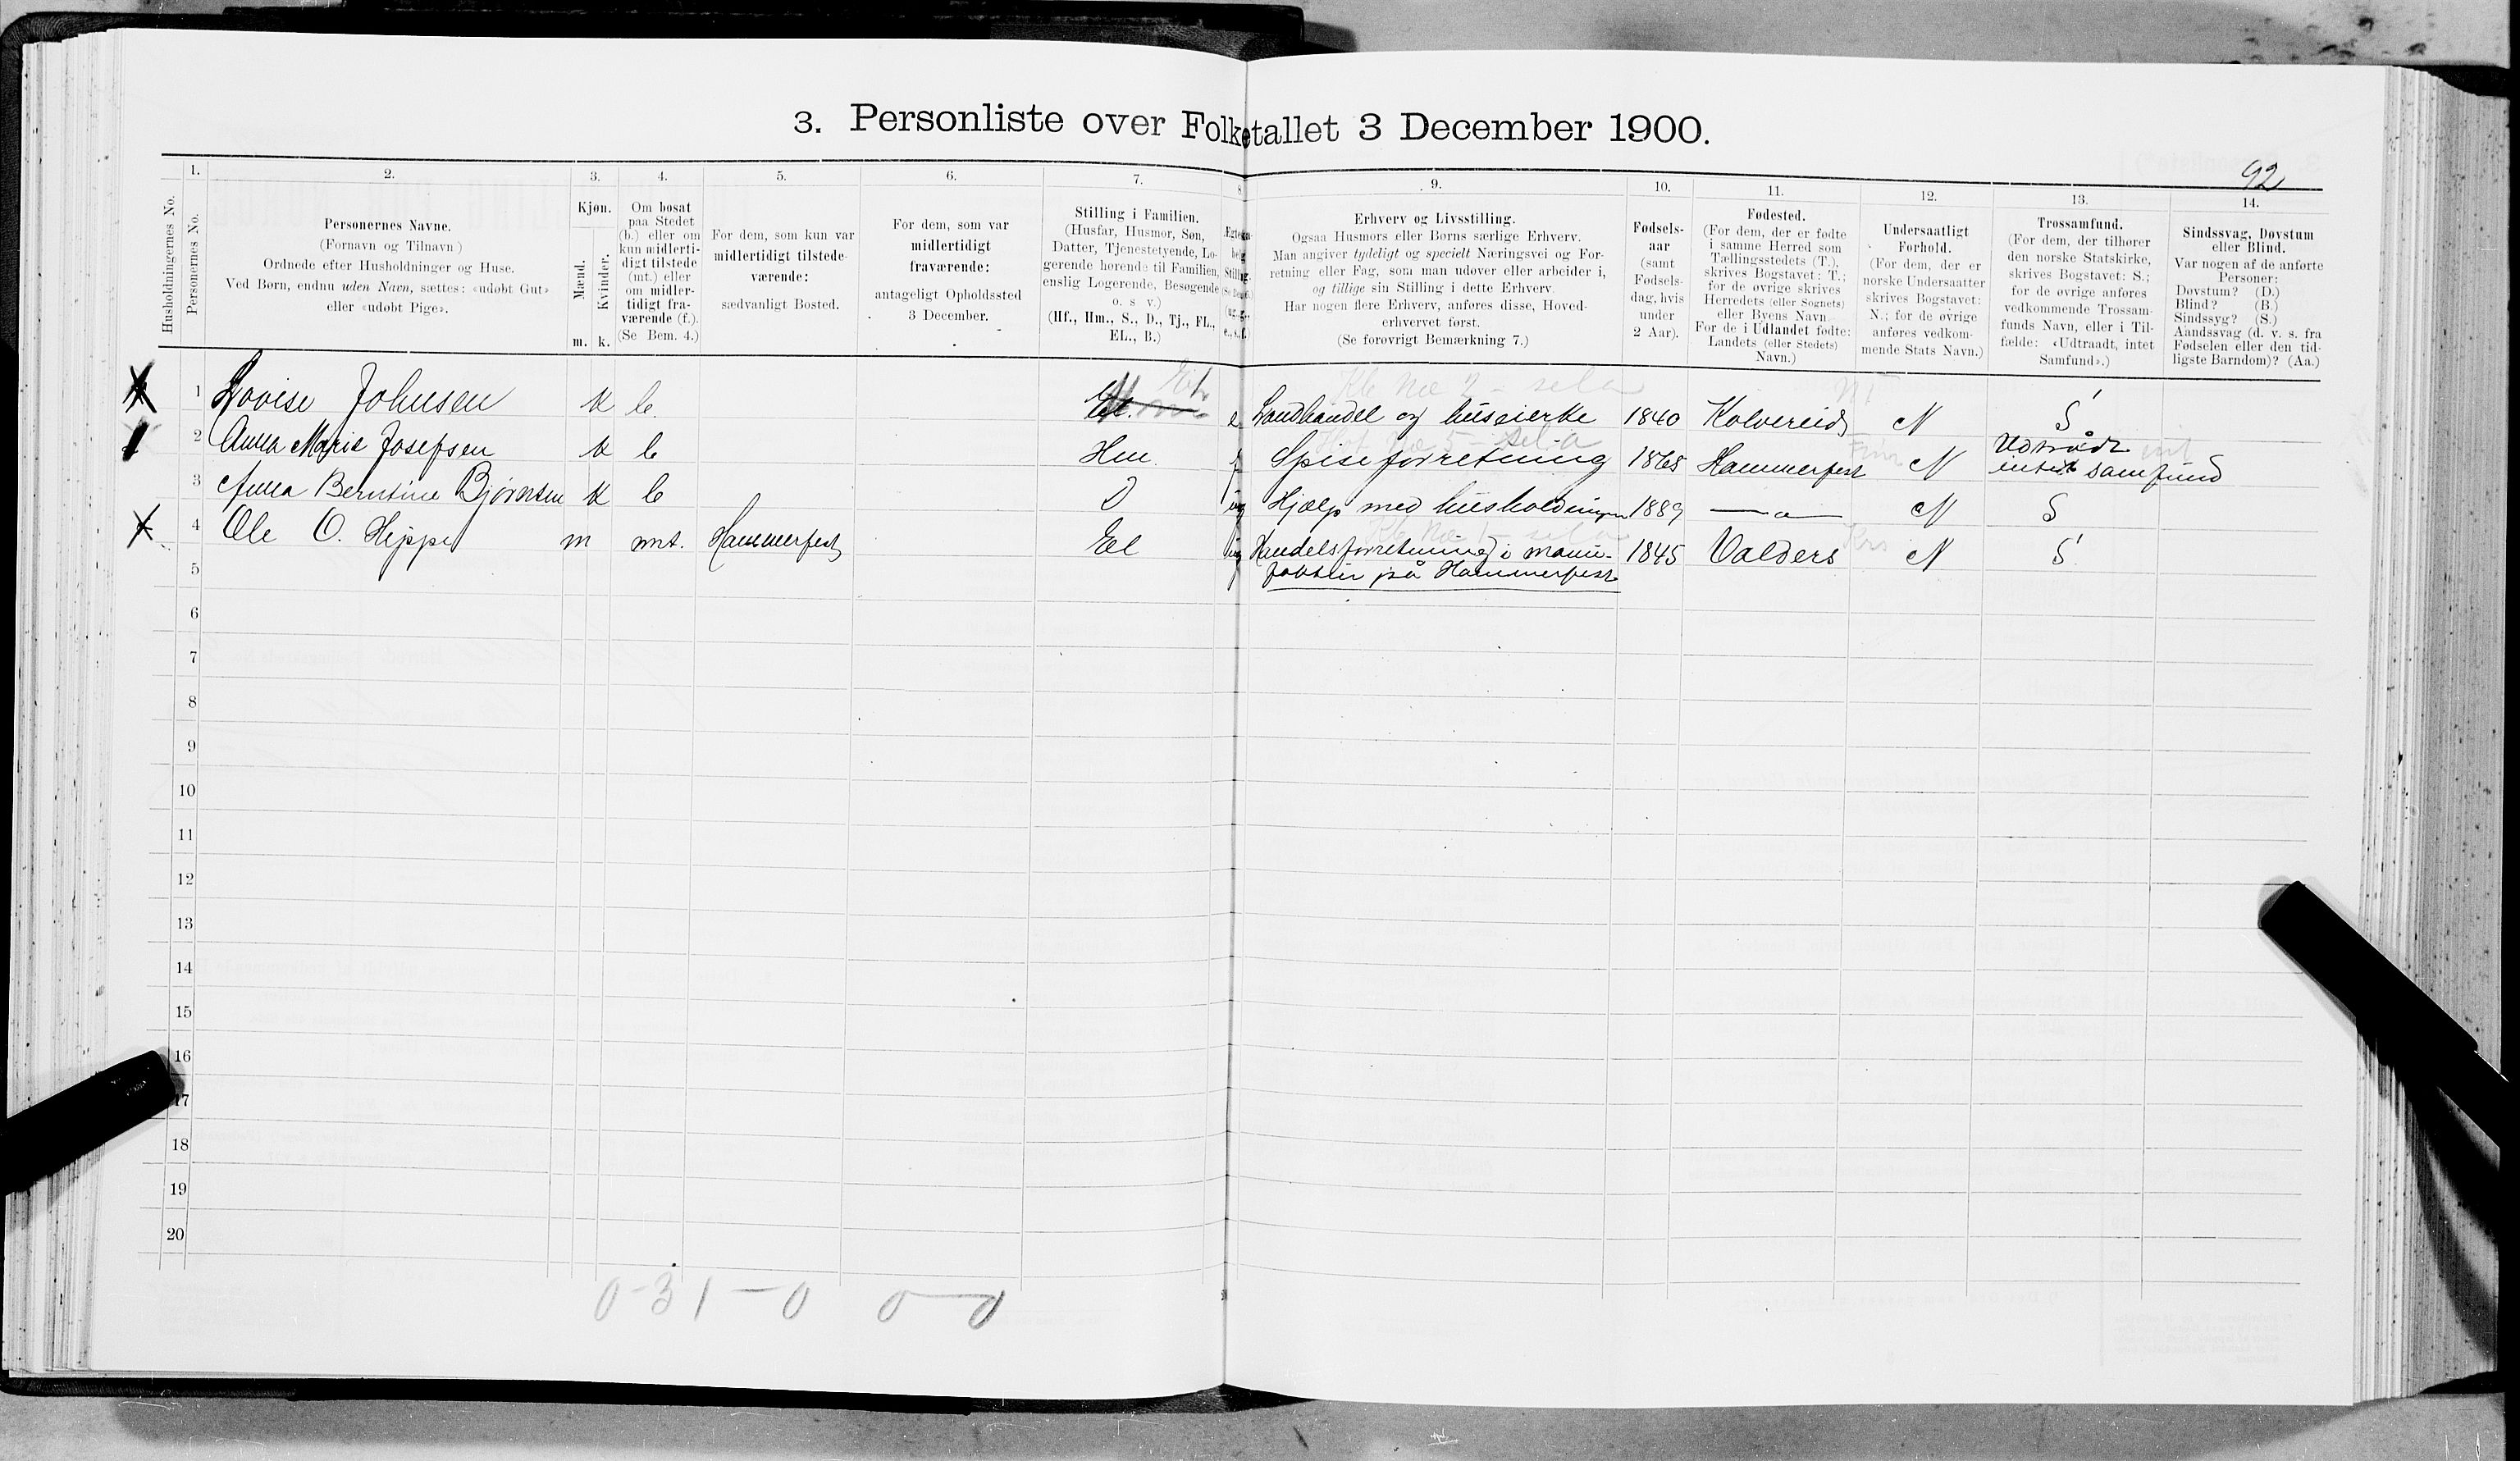 3. Personliste over Folketallet 3 December 1900.
92
Husholdningernes No.
1.
Personernes No.
2.
Personernes Navne.
(Fornavn og Tilnavn)
Ordnede efter Husholdninger og Huse.
Ved Børn, endnu uden Navn, sættes: «udøbt Gut»
eller «udøbt Pige».
3.
Kjøn.
Mænd.
Kvinder.
m. k.
4.
Om bosat
paa Stedet
(b.) eller om
kun midlerti-
digt tilstede
(mt.) eller
om midler-
tidigt fra-
værende (f.).
(Se Bem. 4.)
5.
For dem, som kun var
midlertidigt tilstede-
værende:
sædvanligt Bosted.
6.
For dem, som var
midlertidigt
fraværende:
antageligt Opholdssted
3 December.
7.
Stilling i Familien.
(Husfar, Husmor, Søn,
Datter, Tjenestetyende, Lo-
gerende hørende til Familien,
enslig Logerende, Besøgende
o. s v.)
(Hf., Hm., S., D., Tj., FL.,
EL., B.)
8
9.
Erhverv og Livsstilling.
Ogsaa Husmors eller Børns særlige Erhverv.
Man angiver tydeligt og specielt Næringsvei og For-
retning eller Fag, som man udøver eller arbeider i,
og tillige sin Stilling i dette Erhverv.
Har nogen flere Erhverv, anføres disse, Hoved-
erhvervet først.
(Se forøvrigt Bemærkning 7.)
10.
Fødsels-
aar
(samt
Fødsels-
dag, hvis
under
2 Aar).
11.
Fødested.
(For dem, der er fødte
i samme Herred som
Tællingsstedets (T.),
skrives Bogstavet: T.;
for de øvrige skrives
Herredets (eller Sognets)
eller Byens Navn.
For de i Udlandet fødte:
Landets (eller Stedets)
Navn.)
12.
Undersaatligt
Forhold.
(For dem, der er
norske Undersaatter
skrives Bogstavet:
N.; for de øvrige
anføres vedkom-
mende Stats Navn.)
13.
Trossamfund.
(For dem, der tilhører
den norske Statskirke,
skrives Bogstavet: S.;
for de øvrige anføres
vedkommende Trossam-
funds Navn, eller i Til-
fælde: «Udtraadt, intet
Samfund».)
14.
Sindssvag, Døvstum
eller Blind.
Var nogen af de anførte
Personer:
Døvstum? (D.)
Blind? (B.)
Sindssyg? (S.)
Aandssvag (d. v. s. fra
Fødselen eller den tid-
ligste Barndom)? (Aa.)
1 Lovise Johnsen k b. e Landhandel og huseierke 1840 Kolvereid N S
2 Anna Marie Josefsen k b Hm. f Spiseforretning 1865 Hammerfest N Udtrådt
intet samfund
3 Anna Berntine Bjørnsen k b D ug Hjælp med husholdningen 1889 —„— N S
4 Ole O. Hippe m mt. Hammerfest El ug Handelsforretning i manu- 1845 Valders N S
5 faktur på Hammerfest
6
7
8
9
10
11
12
13
14
15
16
17
18
19
20
0-3 1-0 0—0